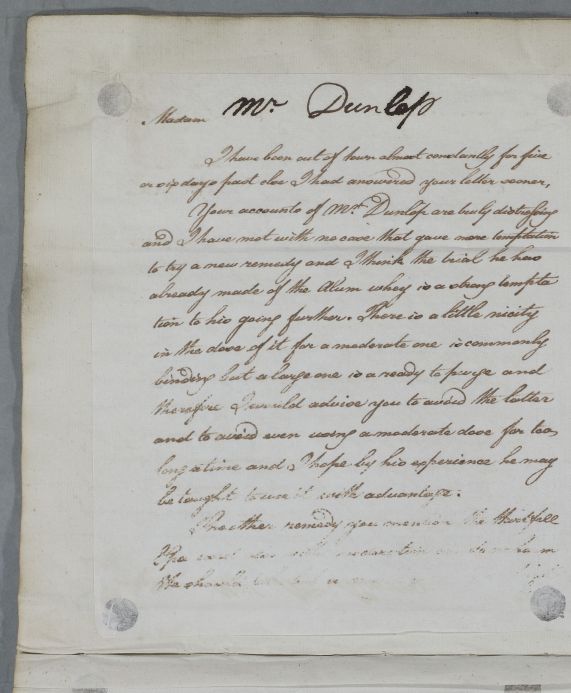 Mr. Dunlop
Madam
I have been out of town almost constantly for five
or six days past else I had answered your letter sooner,
Your accounts of Mr. Dunlop are truly distressing
and I have met with no case that gave more temptation
to try a new remedy and I think the trial he has
already made of the Alum whey is a strong tempta
tion to his going further. There is a little nicity
in the dose of it for a moderate one is commonly
binding but a large one is a ready to purge and
therefore I would advise you to avoid the latter
and to avoid even using a moderate dose for too
long a time and I hope by his experience he may
be taught to use it with advantage.
Another remedy you mention the
he should